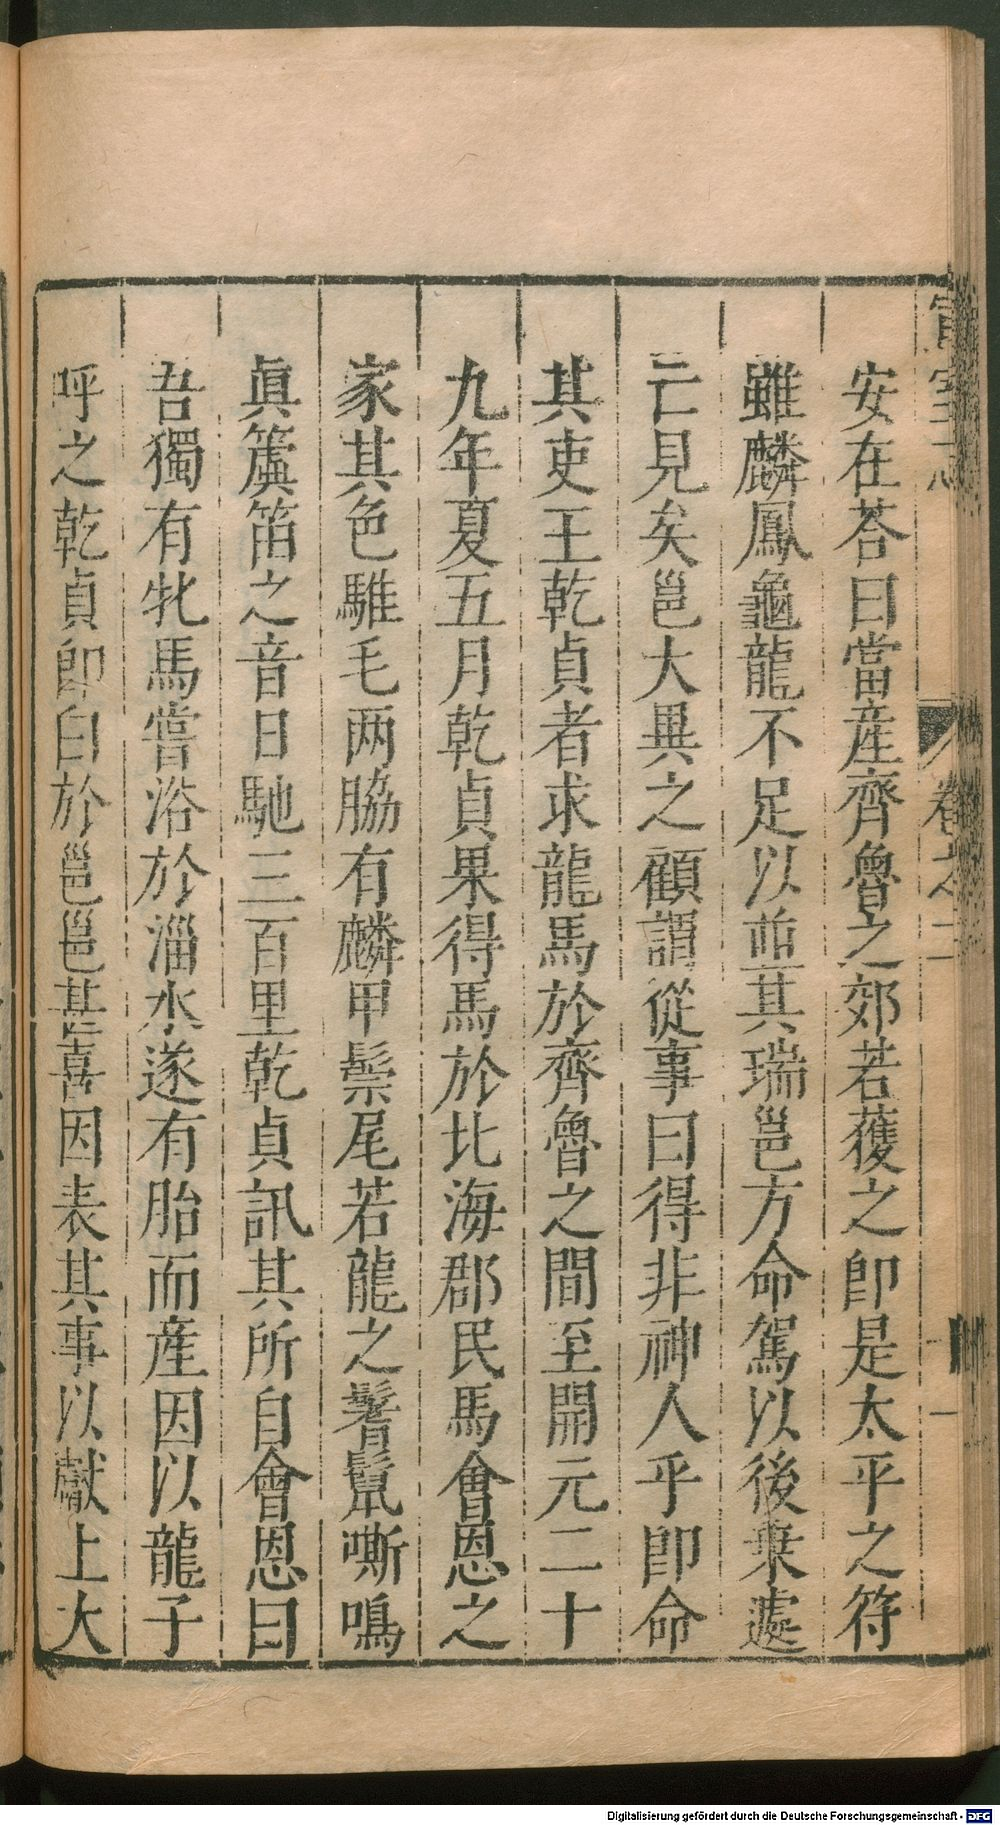 安在荅曰當産齊魯之郊若獲之卽是太平之符
雖麟鳳龜龍不足以並其瑞邕方命駕以後乗遽
亡見矣邕大異之顧謂從事曰得非神人乎卽命
其吏王乾貞者求龍馬於齊魯之間至開元二十
九年夏五月乾貞果得馬於北海郡民馬會恩之
家其色騅毛两脇有麟甲鬃尾若龍之鬐鬣嘶鳴
眞簴笛之音日馳三百里乾貞訊其所自會恩曰
吾獨有牝馬嘗浴於淄水遂有胎而産因以龍子
呼之乾貞卽白於邕邕甚喜因表其事以獻上大
宣室志
卷之二
一
Digitalisierung gefördert durch die Deutsche Forschungsgemeinschaft - DFG